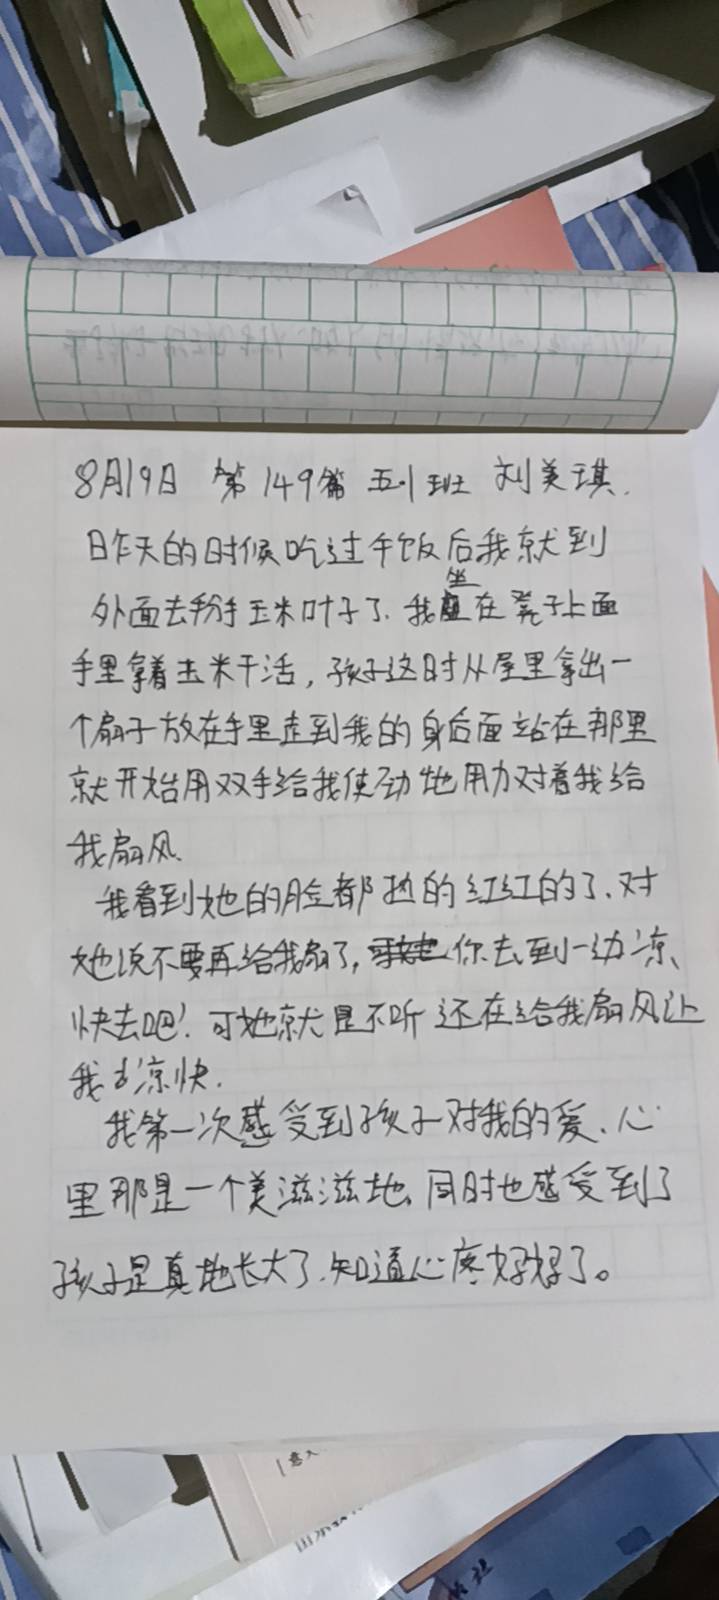 8月19日 第149篇 五.1班 刘美琪.
昨天的时候吃过午饭后我就到
外面去掰玉米叶子了.我坐在凳子上面
手里拿着玉米干活,孩子这时从屋里拿出一
个扇子放在手里走到我的身后面站在那里
就开始用双手给我使劲地用力对着我给
我扇风.
我看到她的脸都热的红红的了.对
她说不要再给我扇了,你去到一边凉
快去吧!可她就是不听还在给我扇风让
我去凉快.
我第一次感受到孩子对我的爱.心
里那是一个美滋滋地,同时也感受到了
孩子是真地长大了.知道心疼妈妈了。